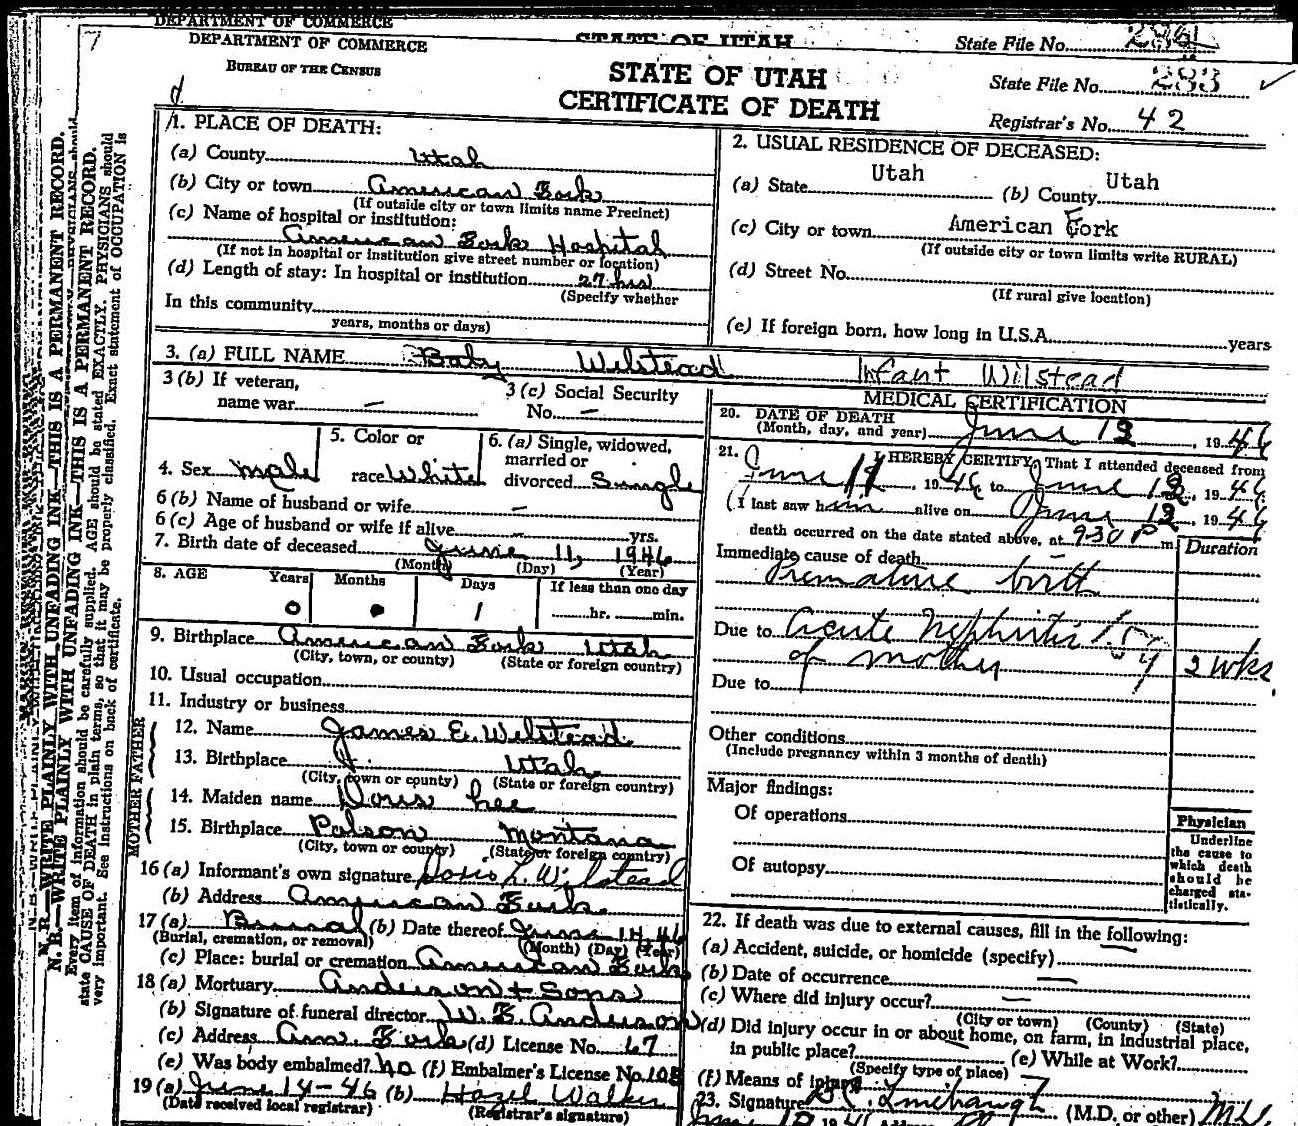 DEPARTMENT OF COMMERCE
STATE OF UTAH
State File No.
7
DEPARTMENT OF COMMERCE
BUREAU OF THE CENSUS
STATE OF UTAH
CERTIFICATE OF DEATH
State File No. 283
Registrar's No. 42
N. B.—WRITE PLAINLY WITH UNFADING INK—THIS IS A PERMANENT RECORD.
Every item of information should be carefully supplied. AGE should be stated EXACTLY. PHYSICIANS should
state CAUSE OF DEATH in plain terms, so that it may be properly classified. Exact statement of OCCUPATION is
very important. See instructions on back of certificate.
1. PLACE OF DEATH:
(a) County Utah
(b) City or town American Fork
(If outside city or town limits name Precinct)
(c) Name of hospital or institution:
American Fork Hospital
(If not in hospital or institution give street number or location)
(d) Length of stay: In hospital or institution 27 hrs
(Specify whether
In this community
years, months or days)
2. USUAL RESIDENCE OF DECEASED:
(a) State Utah (b) County Utah
(c) City or town American Fork
(If outside city or town limits write RURAL)
(d) Street No.
(If rural give location)
(e) If foreign born, how long in U.S.A. years
3. (a) FULL NAME Baby Wilstead Infant Wilstead
3 (b) If veteran,
name war —
3 (c) Social Security
No. —
4. Sex male
5. Color or
race White
6. (a) Single, widowed,
married or
divorced Single
6 (b) Name of husband or wife —
6 (c) Age of husband or wife if alive — yrs.
7. Birth date of deceased June 11, 1946
(Month) (Day) (Year)
8. AGE Years Months Days If less than one day
0 0 1 hr. min.
9. Birthplace American Fork Utah
(City, town, or county) (State or foreign country)
10. Usual occupation
11. Industry or business
FATHER
12. Name James E. Wilstead
13. Birthplace Utah
(City, town or county) (State or foreign country)
MOTHER
14. Maiden name Doris Lee
15. Birthplace Polson Montana
(City, town or county) (State or foreign country)
16 (a) Informant's own signature Doris L. Wilstead
(b) Address American Fork
17 (a) Burial (b) Date thereof June 14 46
(Burial, cremation, or removal) (Month) (Day) (Year)
(c) Place: burial or cremation American Fork
18 (a) Mortuary Anderson & Sons
(b) Signature of funeral director W. E. Anderson
(c) Address Am. Fork (d) License No. 67
(e) Was body embalmed? no (f) Embalmer's License No. 108
19 (a) June 14-46 (b) Hazel Walker
(Date received local registrar) (Registrar's signature)
MEDICAL CERTIFICATION
20. DATE OF DEATH
(Month, day, and year) June 12, 1946
21. I HEREBY CERTIFY, That I attended deceased from
June 11, 1946 to June 12, 1946
(I last saw him alive on June 12, 1946
death occurred on the date stated above, at 9:30 P m.
Duration
Immediate cause of death
Premature birth
Due to Acute Nephritis 159
of mother 2 wks.
Due to
Other conditions
(Include pregnancy within 3 months of death)
Major findings:
Of operations
Of autopsy
Physician
Underline
the cause to
which death
should be
charged sta-
tistically.
22. If death was due to external causes, fill in the following:
(a) Accident, suicide, or homicide (specify) —
(b) Date of occurrence —
(c) Where did injury occur? —
(City or town) (County) (State)
(d) Did injury occur in or about home, on farm, in industrial place,
in public place? (e) While at Work?
(Specify type of place)
(f) Means of injury
23. Signature (M.D. or other) M.D.